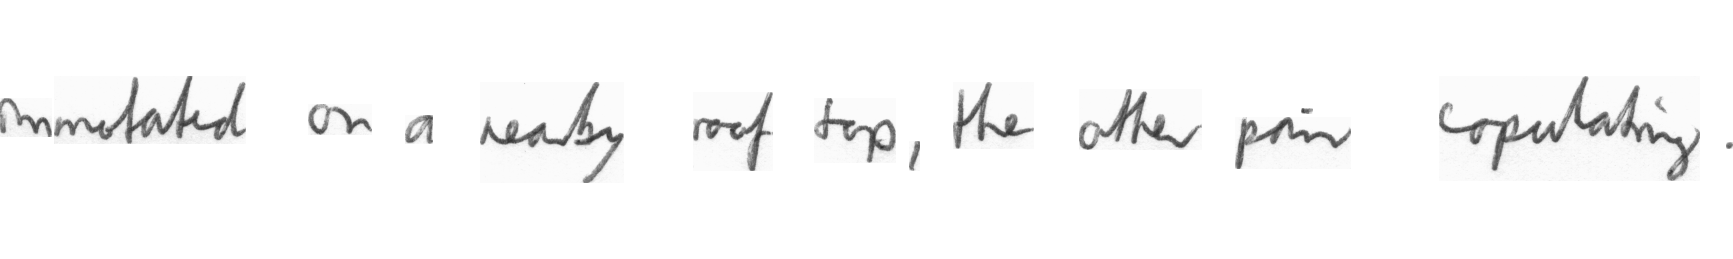 on a nearby roof top, the other pair copulating.